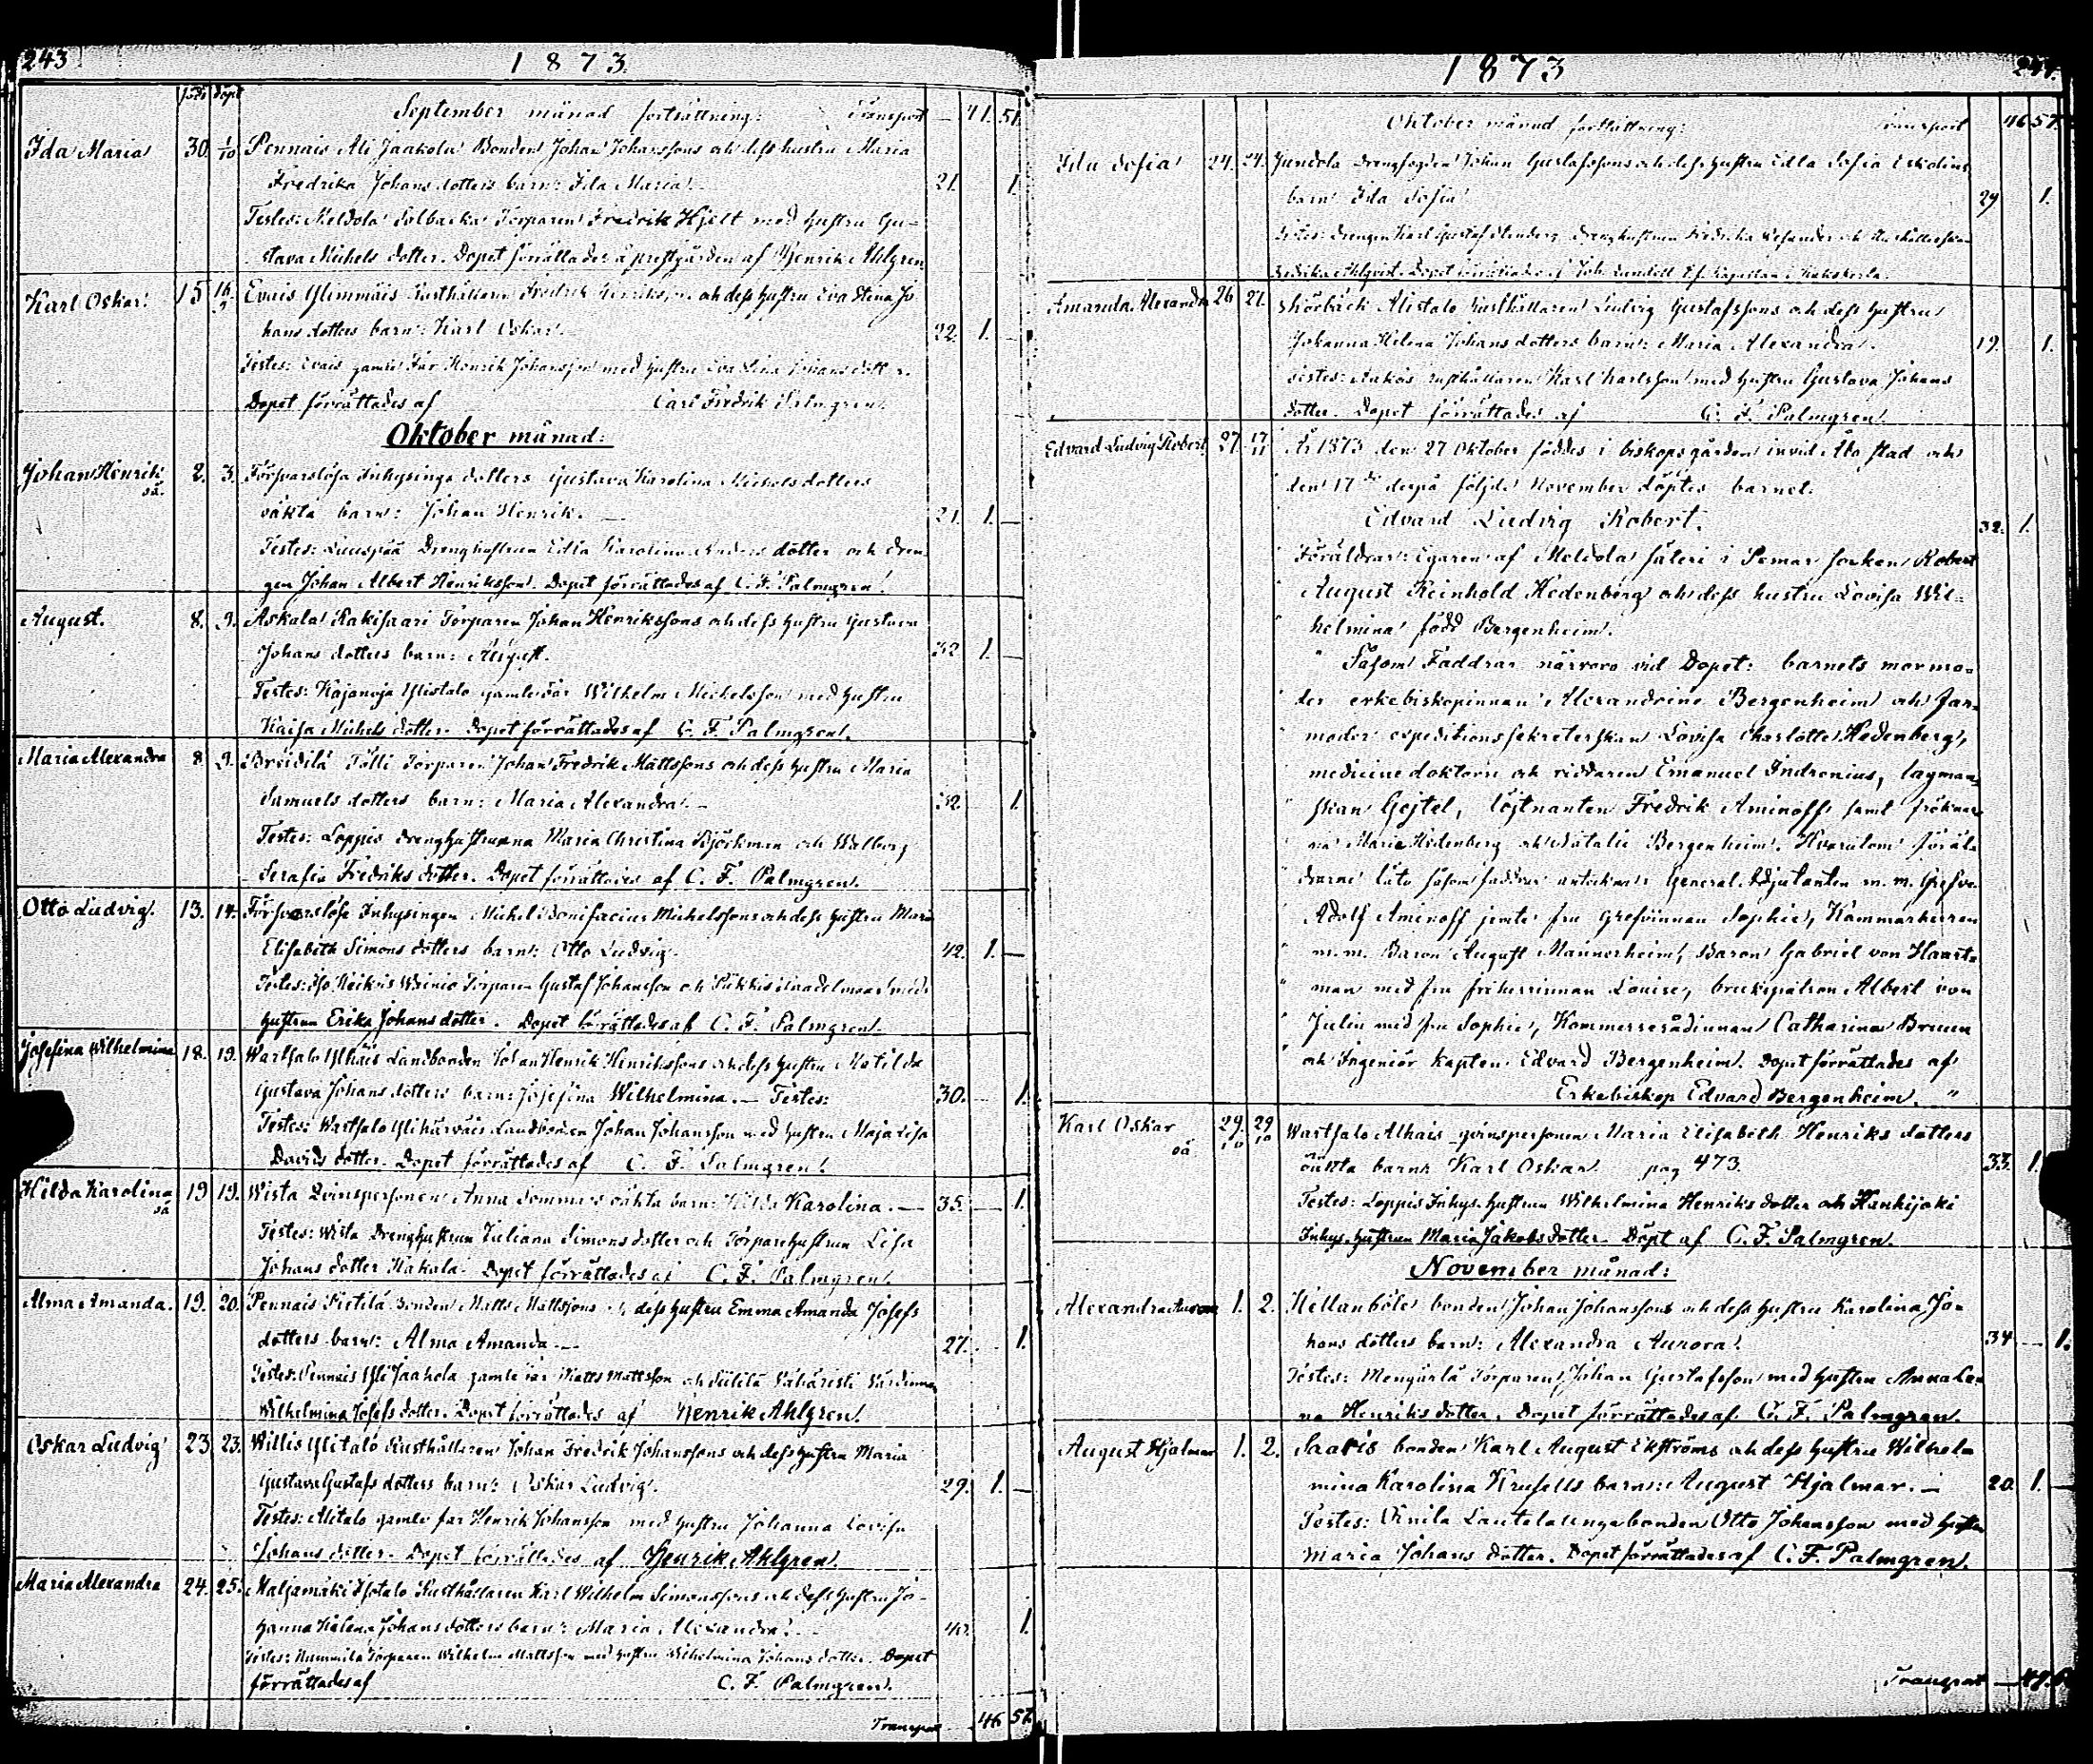 243
1873
född döpt
September månad fortsättning: Transport 41. 51.
Ida Maria 30. 1/10 Pennais Ali Jaakola Bonden Johan Johanssons och dess hustru Maria
Fredrika Johans dotters barn: Ida Maria. 21. 1.
Testes: Meldola Solbacka Torparen Fredrik Hjelt med hustru Gu-
stava Michels dotter. Dopet förrättades å prestgården af Henrik Ahlgren
Karl Oskar. 15 16/9 Evais Ylimmäis Rusthållaren Fredrik Henrikssons och dess hustru Eva Stina Jo
hans dotters barn: Karl Oskar. 22. 1.
Testes: Evais gamle Far Henrik Johansson med hustru Eva Stina Johans dotter.
Dopet förrättades af Carl Fredrik Palmgren.
Oktober månad:
Johan Henrik oä. 2. 3. Försvarslösa Inhysings dotters Gustava Karolina Michels dotters
oäkta barn: Johan Henrik. 21. 1.
Testes: Drenghustrun Edla Karolina Anders dotter och dren
gen Johan Albert Henriksson. Dopet förrättades af C. F. Palmgren.
August. 8. 9. Askala Rakisaari Torparen Johan Henrikssons och dess hustru Gustava
Johans dotters barn: August. 32 1.
Testes: Kojanoja Ylistalo gamle far Wilhelm Michelsson med hustru
Kaisa Michels dotter. Dopet förrättades af C. F. Palmgren.
Maria Alexandra 8. 9. Breidilä Tölli Torparen Johan Fredrik Mattssons och dess hustru Maria
Samuels dotters barn: Maria Alexandra. 32 1.
Testes: Loppis drenghustruna Maria Christina Björkman och Walborg
Serafia Fredriks dotter. Dopet förrättades af C. F. Palmgren.
Otto Ludvig. 13. 14. Försvarslöse Inhysingen Michel Bonifacius Michelssons och dess hustru Maria
Elisabeth Simons dotters barn: Otto Ludvig. 42. 1.
Testes: Iso Heikis Wainio Torparen Gustaf Johansson och med
hustrun Erika Johans dotter. Dopet förrättades af C. F. Palmgren.
Josefina Wilhelmina 18. 19. Wartsalo Ylhäis Landbonden Johan Henrik Henrikssons och dess hustru Matilda
Gustava Johans dotters barn: Josefina Wilhelmina. Testes: 30. 1.
Testes: Wartsalo Landbonden Johan Johansson med hustru Maja Lisa
Davids dotter. Dopet förrättades af C. F. Palmgren.
Hilda Karolina oä 19 19. Wista Qvinspersonen Anna Sommars oäkta barn: Hilda Karolina. 35. 1.
Testes: Wista Drenghustrun Juliana Simons dotter och Torparehustrun Lisa
Johans dotter Kakala. Dopet förrättades af C. F. Palmgren.
Alma Amanda. 19. 20. Pennais Pietilä Bonden Matts Mattssons och dess hustru Emma Amanda Josefs
dotters barn: Alma Amanda. 27. 1.
Testes: Pennais Yli Jaakola gamle far Matts Mattsson och Värdinnan
Wilhelmina Josefs dotter. Dopet förrättades af Henrik Ahlgren.
Oskar Ludvig 23 23. Willis Ylitalo Rusthållaren Johan Fredrik Johanssons och dess hustru Maria
Gustava Gustafs dotters barn: Oskar Ludvig. 29. 1.
Testes: Alitalo gamle far Henrik Johansson med hustru Johanna Lovisa
Johans dotter. Dopet förrättades af Henrik Ahlgren.
Maria Alexandra 24. 25. Maljamäki Isotalo Rusthållaren Karl Wilhelm Simonssons och dess hustru Jo-
hanna Helena Johans dotters barn: Maria Alexandra. 40. 1.
Testes: Nummila Torparen Wilhelm Mattsson med hustru Wilhelmina Johans dotter. Dopet
förrättades af C. F. Palmgren.
Transport 46 57.
1873
244.
Oktober månad fortsättning: Transport 46 57.
Ida Sofia 24. 27. Jundola Drengfogden Johan Gustafssons och dess hustru Edla Sofia Eskolins
barn Ida Sofia 29 1.
Testes: Drengen Karl Gustaf Stenberg, Drenghustrun Fredrika
Fredrika Ahlqvist. Dopet förrättades af Joh. Lundell
Amanda Alexandra 26 27. Skörbäck Alistalo Rusthållaren Ludvig Gustafssons och dess hustru
Johanna Helena Johans dotters barn: Maria Alexandra. 19. 1.
Testes: rusthållaren Karl Karlsson med hustru Gustava Johans
dotter. Dopet förrättades af C. F. Palmgren.
Edvard Ludvig Robert 27. 17/11 År 1873 den 27 Oktober föddes i biskopsgården invid Åbo stad och
den 17de derpå följde November döptes barnet.
Edvard Ludvig Robert. 32. 1.
Föräldrar: Egaren af Meldola säteri i Pemar socken Robert
August Reinhold Hedenberg och dess hustru Lovisa Wil-
helmina född Bergenheim.
Såsom Faddrar närvoro vid Dopet: barnets mormo-
der erkebiskopinnan Alexandrine Bergenheim och far-
moder expeditionssekreterskan Lovisa Charlotte Hedenberg,
medicine doktorn och riddaren Emanuel Indrenius, lagman-
skan Gejtel, löjtnanten Fredrik Aminoff samt fröknar-
na Marie Hedenberg och Natalie Bergenheim. Hvarutom föräl-
drarne låta såsom faddrar anteckna: General Adjutanten m. m. Grefve
Adolf Aminoff jemte fru Grefvinnan Sophie, Kammarherren
m. m. Baron August Mannerheim, Baron Gabriel von Haart-
man med fru friherrinnan Louise, brukspatron Albert von
Julin med fru Sophie, Kommerserådinnan Catharina Bruun
och Ingeniör kapten Edvard Bergenheim. Dopet förrättades af
Erkebiskop Edvard Bergenheim. "
Karl Oskar oä 29/10 29/10 Wartsalo Alhais qvinspersonen Maria Elisabeth Henriks dotters
oäkta barn Karl Oskar. pag 473. 33. 1.
Testes: Loppis Inhys. hustrun Wilhelmina Henriks dotter och Hankijoki
Inhys. hustrun Maria Jakobs dotter. Döpt af C. F. Palmgren.
November månad:
Alexandra Aurora 1. 2. Hellanböle bonden Johan Johanssons och dess hustru Karolina Jo-
hans dotters barn: Alexandra Aurora. 34 1.
Testes: Mengärlä Torparen Johan Gustafsson med hustru Anna Le-
na Henriks dotter. Dopet förrättades af C. F. Palmgren.
August Hjalmar 1. 2. Saaris bonden Karl August Ekströms och dess hustru Wilhel
mina Karolina Krusells barn: August Hjalmar. 20. 1.
Testes: Vinila Lautela unga bonden Otto Johansson med hustru
Maria Johans dotter. Dopet förrättades af C. F. Palmgren.
Transport